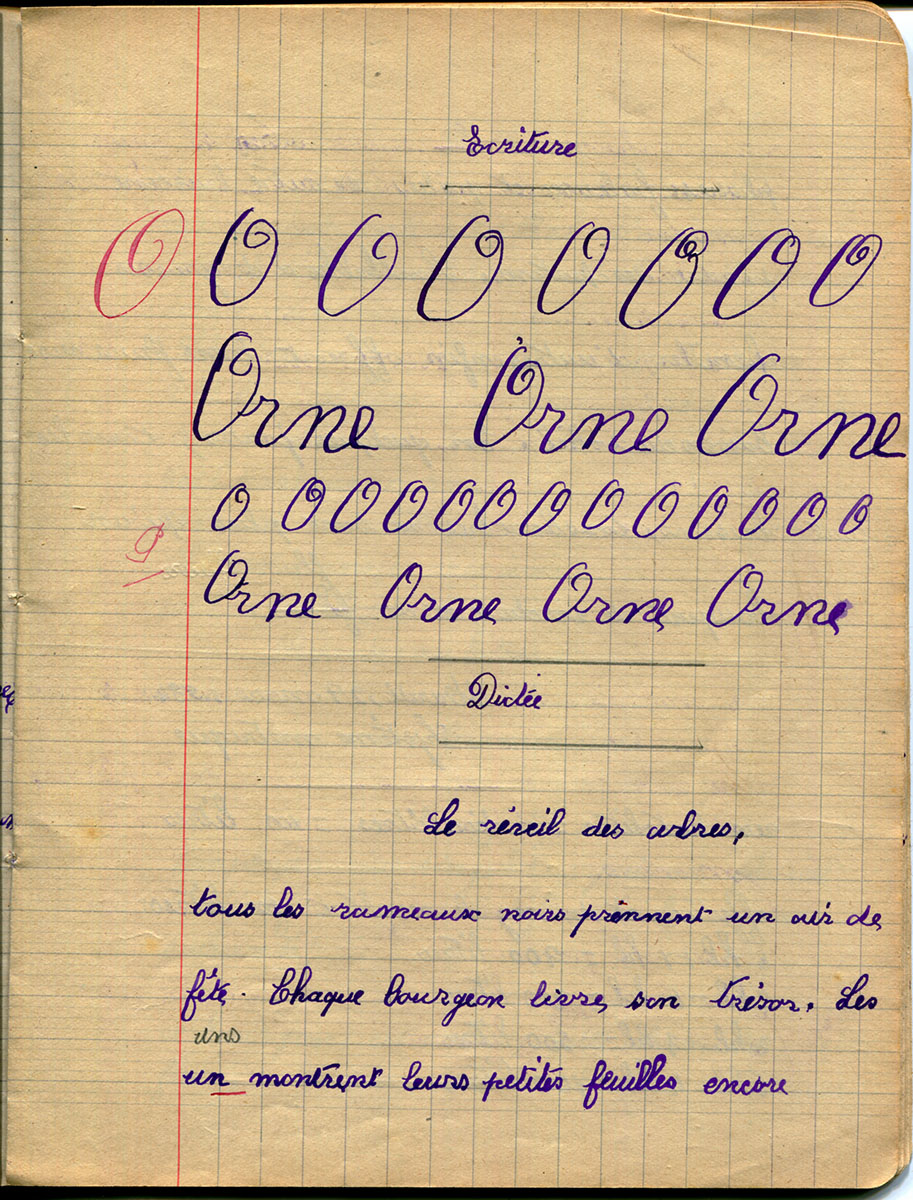 Ecriture
O O O O O O O O
Orne Orne Orne
O O O O O O O O O O O O O
9
Orne Orne Orne Orne
Dictée
Le réveil des arbres.
tous les rameaux noirs prênnent un air de
fête. Chaque bourgeon livre son trésor. Les
uns
un montrent leurs petites feuilles encore